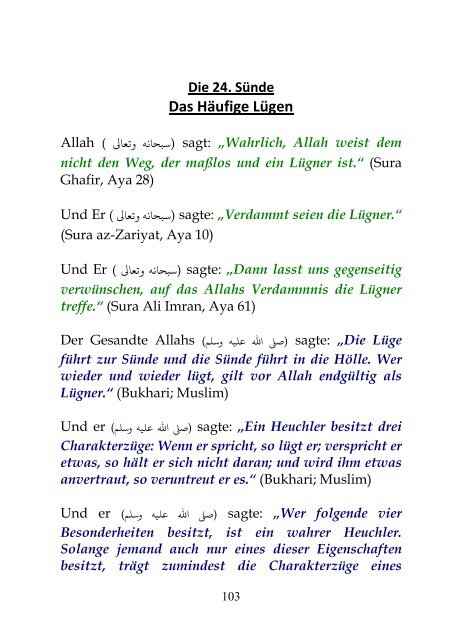 Die 24. Sünde
Das Häufige Lügen
Allah ( سبحانه وتعالى) sagt: „Wahrlich, Allah weist dem
nicht den Weg, der maßlos und ein Lügner ist.“ (Sura
Ghafir, Aya 28)
Und Er ( سبحانه وتعالى) sagte: „Verdammt seien die Lügner.“
(Sura az-Zariyat, Aya 10)
Und Er ( سبحانه وتعالى) sagte: „Dann lasst uns gegenseitig
verwünschen, auf das Allahs Verdammnis die Lügner
treffe.“ (Sura Ali Imran, Aya 61)
Der Gesandte Allahs (صلى الله عليه وسلم) sagte: „Die Lüge
führt zur Sünde und die Sünde führt in die Hölle. Wer
wieder und wieder lügt, gilt vor Allah endgültig als
Lügner.“ (Bukhari; Muslim)
Und er (صلى الله عليه وسلم) sagte: „Ein Heuchler besitzt drei
Charakterzüge: Wenn er spricht, so lügt er; verspricht er
etwas, so hält er sich nicht daran; und wird ihm etwas
anvertraut, so veruntreut er es.“ (Bukhari; Muslim)
Und er (صلى الله عليه وسلم) sagte: „Wer folgende vier
Besonderheiten besitzt, ist ein wahrer Heuchler.
Solange jemand auch nur eines dieser Eigenschaften
besitzt, trägt zumindest die Charakterzüge eines
103